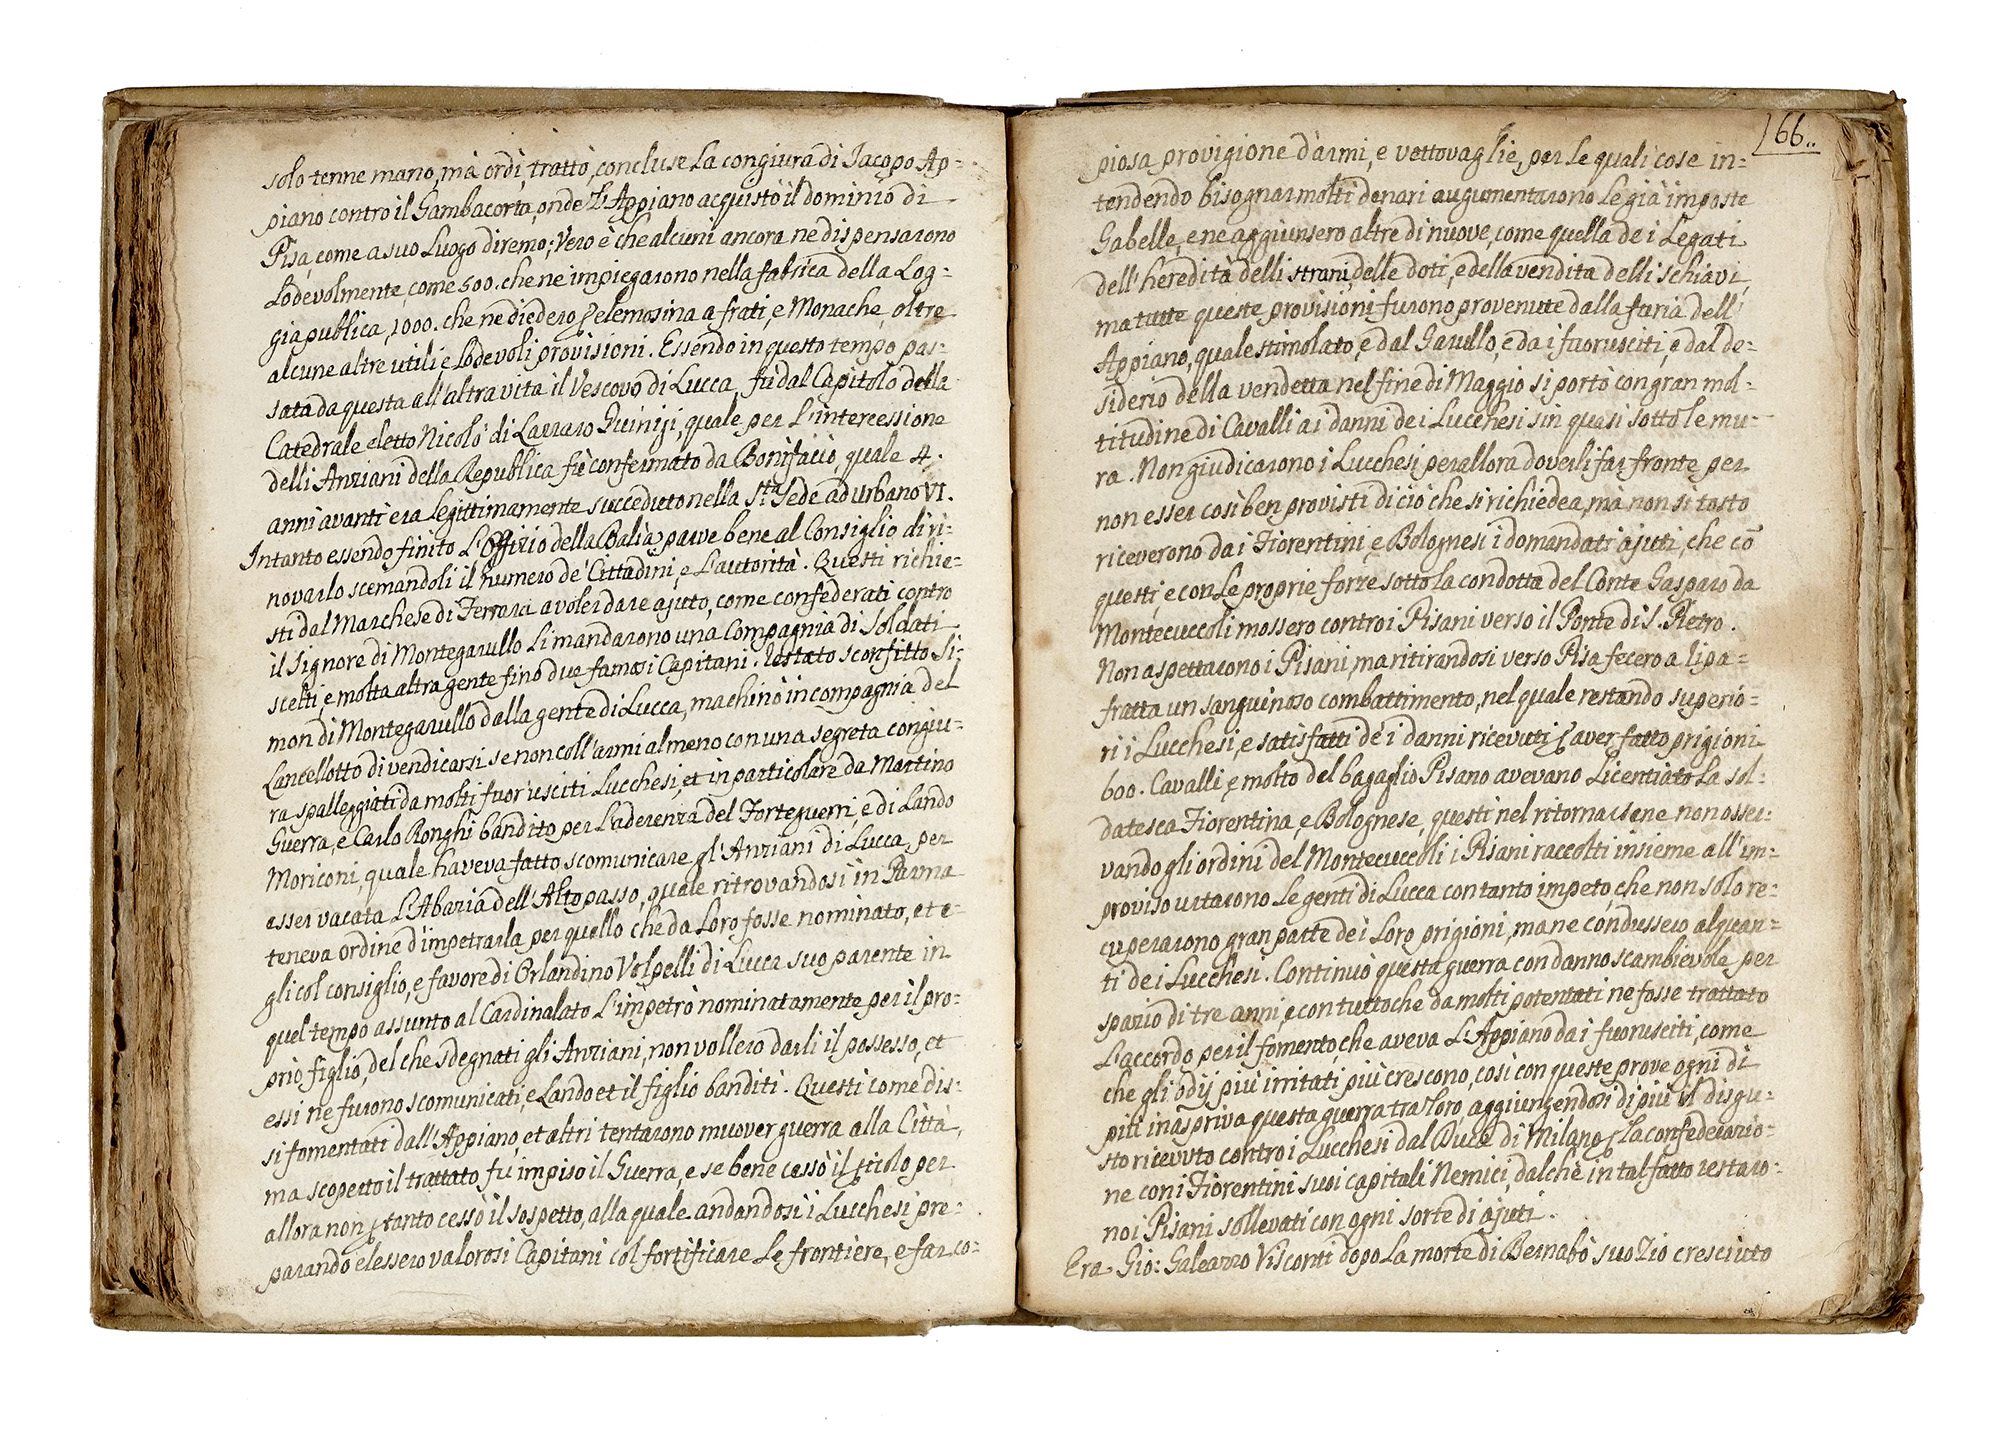 solo tenne mano, mà ordì, trattò, concluse la congiura di Jacopo Ap=
piano contro il Gambacorta, onde L'Appiano acquistò il dominio di
Pisa, come a suo Luogo diremo; Vero è che alcuni ancora ne dispensarono
Lodevolmente, come 500. che ne impiegarono nella fabrica della Log=
gia publica, 1000. che ne diedero p elemosina a frati, e Monache, oltre
alcune altre utili, e lodevoli provisioni. Essendo in questo tempo pas=
sata da questa all'altra vita il Vescovo di Lucca, fù dal Capitolo della
Catedrale eletto Nicolò di Lazzaro Guinigi, quale per L'intercessione
delli Anziani della Republica fù confermato da Bonifacio, quale 4.
anni avanti era legittimamente succeduto nella S.ta Sede ad Urbano VI.
Intanto essendo finito L'Offizio della Balìa, parve bene al Consiglio di ri=
novarlo scemandoli il numero de' Cittadini, e L'autorità. Questi richie=
sti dal Marchese di Ferrara a voler dare ajuto, come confederati contro
il Signore di Montegarullo Li mandarono una Compagnia di Soldati
scelti, e molta altra gente fino due famosi Capitani. Restato sconfitto Si=
mon di Montegarullo dalla gente di Lucca, machinò in compagnia del
Lancellotto di vendicarsi se non coll'armi almeno con una segreta congiu=
ra spalleggiati da molti fuor'usciti Lucchesi, et in particolare da Martino
Guerra, e Carlo Ronghi bandito per L'aderenza del Forteguerri, e di Lando
Moriconi, quale haveva fatto scomunicare gl'Anziani di Lucca, per
esser vacata L'Abazia dell'Alto passo, quale ritrovandosi in Parma
teneva ordine d'impetrarla per quello che da Loro fosse nominato, et e=
gli col consiglio, e favore di Orlandino Volpelli di Lucca suo parente in
quel tempo assunto al Cardinalato L'impetrò nominatamente per il pro=
prio figlio, del che sdegnati gli Anziani, non vollero darli il possesso, et
essi ne furono scomunicati, e Lando et il figlio banditi. Questi come dis=
si fomentati dall'Appiano, et altri tentarono muover guerra alla Città,
ma scoperto il trattato fù impiso il Guerra, e se bene cessò il pericolo per
allora non p tanto cessò il sospetto, alla quale andandosi i Lucchesi pre=
parando elessero valorosi Capitani col fortificare Le frontiere, e far co=
166..
piosa provigione d'armi, e vettovaglie, per le quali cose in=
tendendo bisognar molti denari augumentarono le già imposte
Gabelle, e ne aggiunsero altre di nuove, come quella de i Legati
dell'heredità delli strani, delle doti, e della vendita delli schiavi,
ma tutte queste provisioni furono provenute dalla furia dell'
Appiano, quale stimolato, e dal Garullo, e da i fuorusciti, e dal de=
siderio della vendetta nel fine di Maggio si portò con gran mol=
titudine di Cavalli ai danni de i Lucchesi sin quasi sotto le mu=
ra. Non giudicarono i Lucchesi per allora doverli far fronte per
non esser così ben provisti di ciò che si richiedea, mà non sì tosto
riceverono da i Fiorentini, e Bolognesi i domandati ajuti, che cō
questi, e con Le proprie forze sotto la condotta del Conte Gasparo da
Montecuccoli mossero contro i Pisani verso il Ponte di S. Pietro.
Non aspettarono i Pisani, ma ritirandosi verso Pisa fecero a lipa=
fratta un sanguinoso combattimento, nel quale restando superio=
ri i Lucchesi, e satisfatti de i danni ricevuti p aver fatto prigioni
600. Cavalli, e molto del bagaglio Pisano avevano Licentiato La sol=
datesca Fiorentina, e Bolognese, questi nel ritornarsene non osser=
vando gli ordini del Montecuccoli i Pisani raccolti insieme all'im=
proviso urtarono Le genti di Lucca con tanto impeto, che non solo re=
cuperarono gran parte de i Loro prigioni, ma ne condussero alquan=
ti de i Lucchesi. Continuò questa guerra con danno scambievole per
spazio di tre anni, e con tutto che da molti potentati ne fosse trattato
L'accordo per il fomento, che aveva L'Appiano da i fuorusciti, come
che gli odij più irritati più crescono, così con queste prove ogni dì
più inaspriva questa guerra tra loro aggiungendosi di più il disgu=
sto ricevuto contro i Lucchesi dal Duca di Milano p La confederazio=
ne con i Fiorentini suoi capitali Nemici, dal chè in tal fatto restaro=
no i Pisani sollevati con ogni sorte di ajuti.
Era Gio: Galeazzo Visconti dopo La morte di Bernabò suo Zio cresciuto